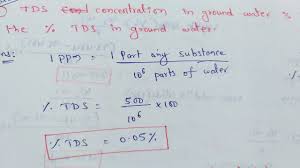 TDS concentration in ground water is
the % TDS in ground water
Ans:
1 PPM = 1 Part any substance
10⁶ parts of water
% TDS = 500 × 100
10⁶
% TDS = 0.05%